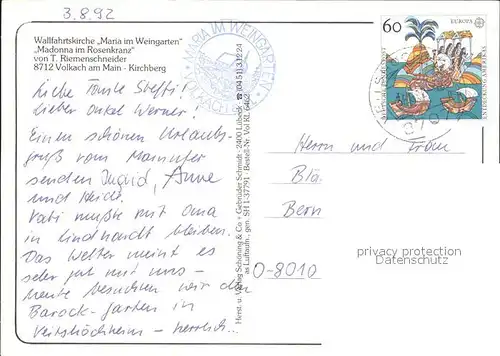 3.8.92
Wallfahrtskirche „Maria im Weingarten"
„Madonna im Rosenkranz"
von T. Riemenschneider
8712 Volkach am Main - Kirchberg
Liebe Tante Steffi!
Lieber Onkel Werner!
Einen schönen Urlaubs-
gruß vom Mainufer
senden Ingrid, Anne
und Heidi.
Vati mußte mit Oma
in Lindhardt bleiben.
Das Wetter meint es
sehr gut mit uns –
heute besuchen wir den
Barock-garten in
Veitshöchheim – herrlich...
MARIA IM WEINGARTEN
VOLKACH
Herst. u. Verlag Schöning & Co + Gebrüder Schmidt · 2400 Lübeck · ☎ (0451) 31224
als Luftaufn., gen. SH 1-37791 · Bestell-Nr. Vol RL 6462
60
EUROPA
CEPT
Herrn und Frau
Bern
O-8010
privacy protection
Datenschutz